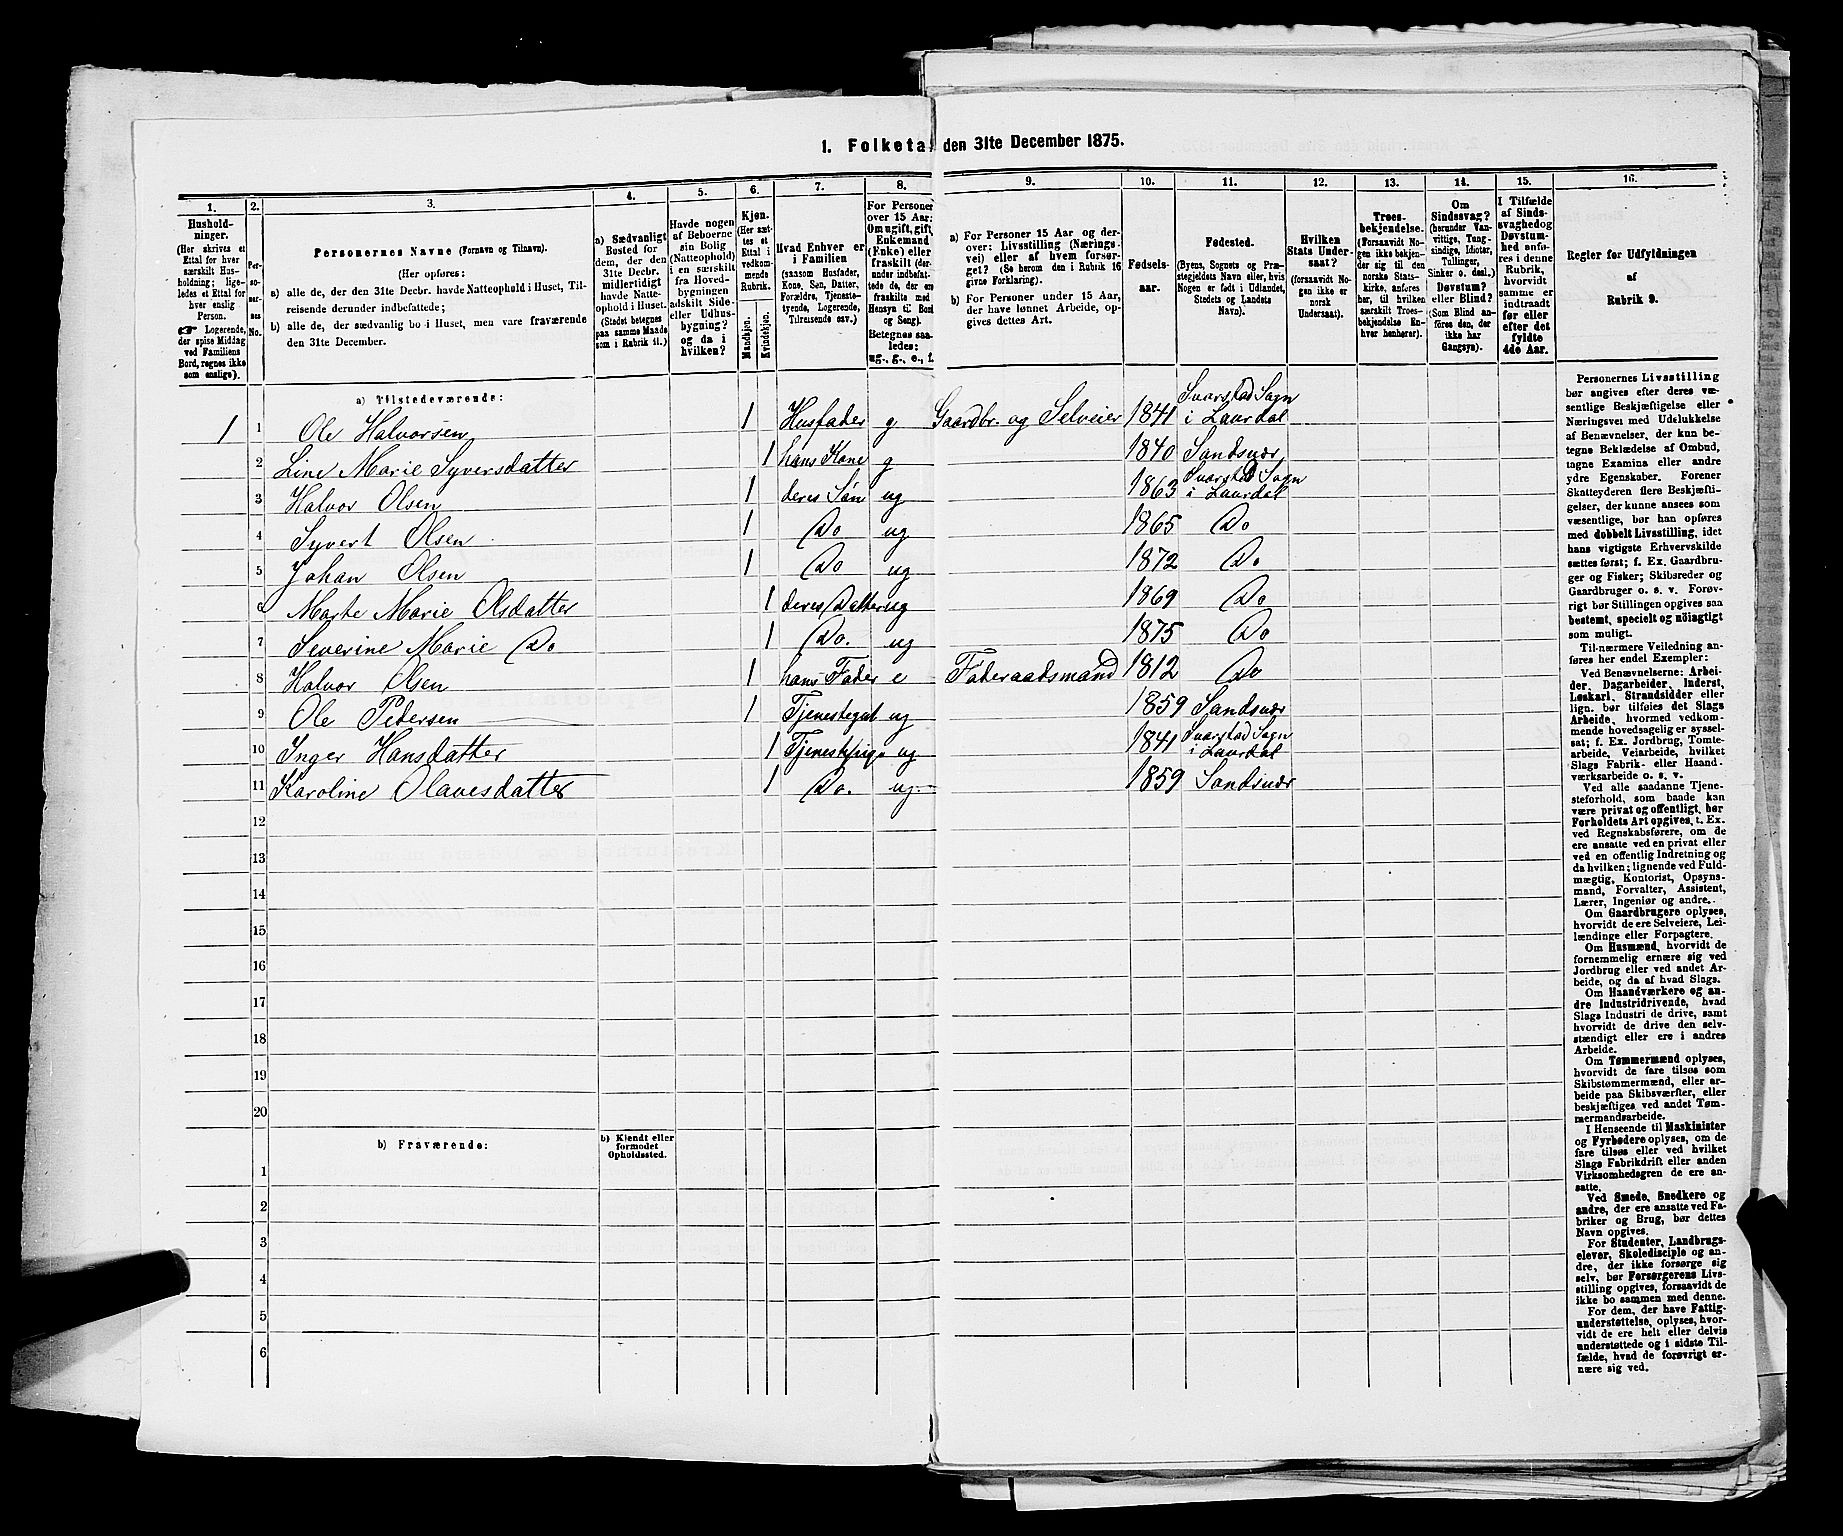 1. Folketal den 31te December 1875.
1.
Hushold-
ninger.
(Her skrives et
Ettal for hver
særskilt Hus-
holdning; lige-
ledes et Ettal for
hver enslig
Person.
☞ Logerende,
der spise Middag
ved Familiens
Bord, regnes ikke
som enslige).
2.
Per-
so-
ner-
nes
No.
3.
Personernes Navne (Fornavn og Tilnavn).
(Her opføres:
a) alle de, der den 31te Decbr. havde Natteophold i Huset, Til-
reisende derunder indbefattede;
b) alle de, der sædvanlig bo i Huset, men vare fraværende
den 31te December.
4.
a) Sædvanligt
Bosted for
dem, der den
31te Decbr.
midlertidigt
havde Natte-
ophold i Huset.
(Stedet betegnes
paa samme Maade
som i Rubrik 11.)
5.
Havde nogen
af Beboerne
sin Bolig
(Natteophold)
i en særskilt
fra Hoved-
bygningen
adskilt Side-
eller Udhus-
bygning?
og da i
hvilken?
6.
Kjøn.
(Her sæt-
tes et
Ettal i
vedkom-
mende
Rubrik.
Mandkjøn.
Kvindekjøn.
7.
Hvad Enhver er
i Familien
(saasom Husfader,
Kone, Søn, Datter,
Forældre, Tjeneste-
tyende, Logerende,
Tilreisende osv.)
8.
For Personer
over 15 Aar:
Om ugift, gift,
Enkemand
(Enke) eller
fraskilt (der-
under indbefat-
tede de, der ere
fraskilte med
Hensyn til Bord
og Seng).
Betegnes saa-
ledes:
ug., g., e., f.
9.
a) For Personer 15 Aar og der-
over: Livsstilling (Nærings-
vei) eller af hvem forsør-
get? (Se herom den i Rubrik 16
givne Forklaring).
b) For Personer under 15 Aar,
der have lønnet Arbeide, op-
gives dettes Art.
10.
Fødsels-
aar.
11.
Fødested.
(Byens, Sognets og Præ-
stegjeldets Navn eller, hvis
Nogen er født i Udlandet,
Stedets og Landets
Navn).
12.
Hvilken
Stats Under-
saat?
(forsaavidt No-
gen ikke er
norsk
Undersaat).
13.
Troes-
bekjendelse.
(Forsaavidt No-
gen ikke bekjen-
der sig til den
norske Stats-
kirke, anføres
her, til hvilken
særskilt Troes-
bekjendelse En-
hver henhører).
14.
Om
Sindssvag?
(herunder Van-
vittige, Tung-
sindige, Idioter,
Tullinger,
Sinker o. desl.)
Døvstum?
eller Blind?
(Som Blind an-
føres den, der
ikke har
Gangsyn).
15.
I Tilfælde
af Sinds-
svaghed og
Døvstum-
hed anfø-
res i denne
Rubrik,
hvorvidt
samme er
indtraadt
før eller
efter det
fyldte
4de Aar.
16.
Regler for Udfyldningen
af
Rubrik 9.
a) Tilstedeværende:
1 1 Ole Halvorsen 1 Husfader g Gaardbr. og Selveier 1841 Svarstad Sogn i Laurdal
2 Line Marie Syversdatter 1 hans Kone g 1840 Sandsvær
3 Halvor Olsen 1 deres Søn ug 1863 Svarstad Sogn i Laurdal
4 Syvert Olsen 1 Do ug 1865 Do
5 Johan Olsen 1 Do ug 1872 Do
6 Marte Marie Olsdatter 1 deres Datter ug 1869 Do
7 Severine Marie Do 1 Do. ug 1875 Do
8 Halvor Olsen 1 hans Fader e Føderaadsmand 1812 Do
9 Ole Pedersen 1 Tjenestegut ug 1859 Sandsvær
10 Inger Hansdatter 1 Tjenestepige ug 1841 Svarstad Sogn i Laurdal
11 Karoline Olavesdatter 1 Do. ug. 1859 Sandsvær
12
13
14
15
16
17
18
19
20
b) Fraværende:
b) Kjendt eller
formodet
Opholdssted.
1
2
3
4
5
6
Personernes Livsstilling
bør angives efter deres væ-
sentlige Beskjæftigelse eller
Næringsvei med Udelukkelse
af Benævnelser, der kun be-
tegne Beklædelse af Ombud,
tagne Examina eller andre
ydre Egenskaber. Forener
Skatteyderen flere Beskjæfti-
gelser, der kunne ansees som
væsentlige, bør han opføres
med dobbelt Livsstilling, idet
hans vigtigste Erhvervskilde
sættes først; f. Ex. Gaardbru-
ger og Fisker; Skibsreder og
Gaardbruger o. s. v. Forøv-
rigt bør Stillingen opgives saa
bestemt, specielt og nöiagtigt
som muligt.
Til nærmere Veiledning an-
føres her endel Exempler:
Ved Benævnelserne: Arbei-
der, Dagarbeider, Inderst,
Løskarl, Strandsidder eller
lign. bør tilføies det Slags
Arbeide, hvormed vedkom-
mende hovedsagelig er syssel-
sat; f. Ex. Jordbrug, Tomte-
arbeide, Veiarbeide, hvilket
Slags Fabrik- eller Haand-
værksarbeide o. s. v.
Ved alle saadanne Tjene-
steforhold, som baade kan
være privat og offentligt, bør
Forholdets Art opgives, t. Ex.
ved Regnskabsførere, om de
ere ansatte ved en privat eller
ved en offentlig Indretning og
da hvilken; lignende ved Fuld-
mægtig, Kontorist, Opsyns-
mand, Forvalter, Assistent,
Lærer, Ingeniør og andre.
Om Gaardbrugere oplyses,
hvorvidt de ere Selveiere, Lei-
lændinge eller Forpagtere.
Om Husmænd, hvorvidt de
fornemmelig ernære sig ved
Jordbrug eller ved andet Ar-
beide, og da af hvad Slags.
Om Haandværkere og an-
dre Industridrivende, hvad
Slags Industri de drive, samt
hvorvidt de drive den selv-
stændigt eller ere i andres
Arbeide.
Om Tømmermænd oplyses,
hvorvidt de fare tilsøs som
Skibstømmermænd, eller ar-
beide paa Skibsværfter, eller
beskjæftiges ved andet Tøm-
mermandsarbeide.
I Henseende til Maskinister
og Fyrbødere oplyses, om de
fare tilsøs eller ved hvilket
Slags Fabrikdrift eller anden
Virksomhedsgren de ere an-
satte.
Ved Smede, Snedkere og
andre, der ere ansatte ved Fa-
briker og Brug, bør dettes
Navn opgives.
For Studenter, Landbrugs-
elever, Skoledisciple og an-
dre, der ikke forsørge sig
selv, bør Forsørgerens Livs-
stilling opgives, forsaavidt de
ikke bo sammen med denne.
For dem, der have Fattig-
understøttelse, oplyses, hvor-
vidt de ere helt eller delvis
understøttede og i sidste Til-
fælde, hvad de forøvrigt er-
nære sig ved.